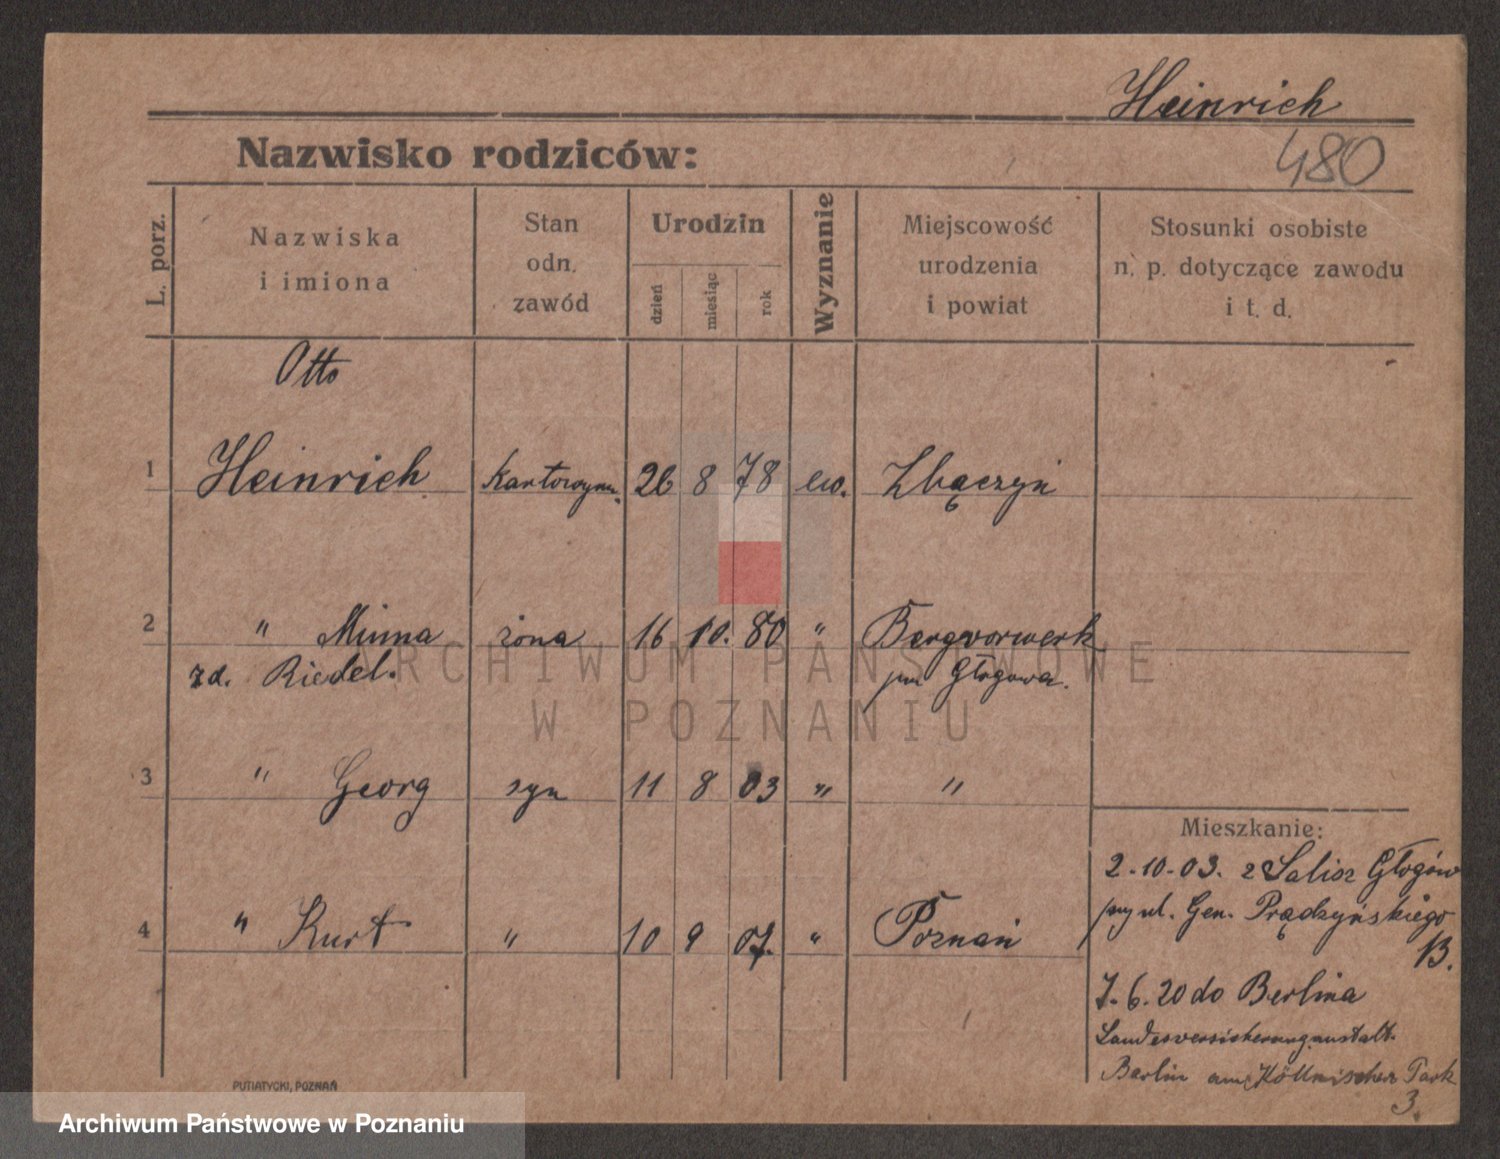 Heinrich
480
Nazwisko rodziców:
L. porz.
Nazwiska
i imiona
Stan
odn.
zawód
Urodzin
dzień
miesiąc
rok
Wyznanie
Miejscowość
urodzenia
i powiat
Stosunki osobiste
n. p. dotyczące zawodu
i t. d.
Otto
1 Heinrich 26 8 78 ew. Zbączyń
2 " Minna żona 16 10. 80 " Bergvorwerk
zd. Riedel. Głogowa.
3 " Georg syn 11 8 03 " "
4 " Kurt " 10 9 07. " Poznań
Mieszkanie:
2.10.03. z Salisz Głogów
ul. Gen. Prądzyńskiego
13.
7.6.20 do Berlina
Landesversicherungsanstalt.
Berlin am Köllnischen Park
3.
PUTIATYCKI, POZNAŃ
ARCHIWUM PAŃSTWOWE
W POZNANIU
Archiwum Państwowe w Poznaniu